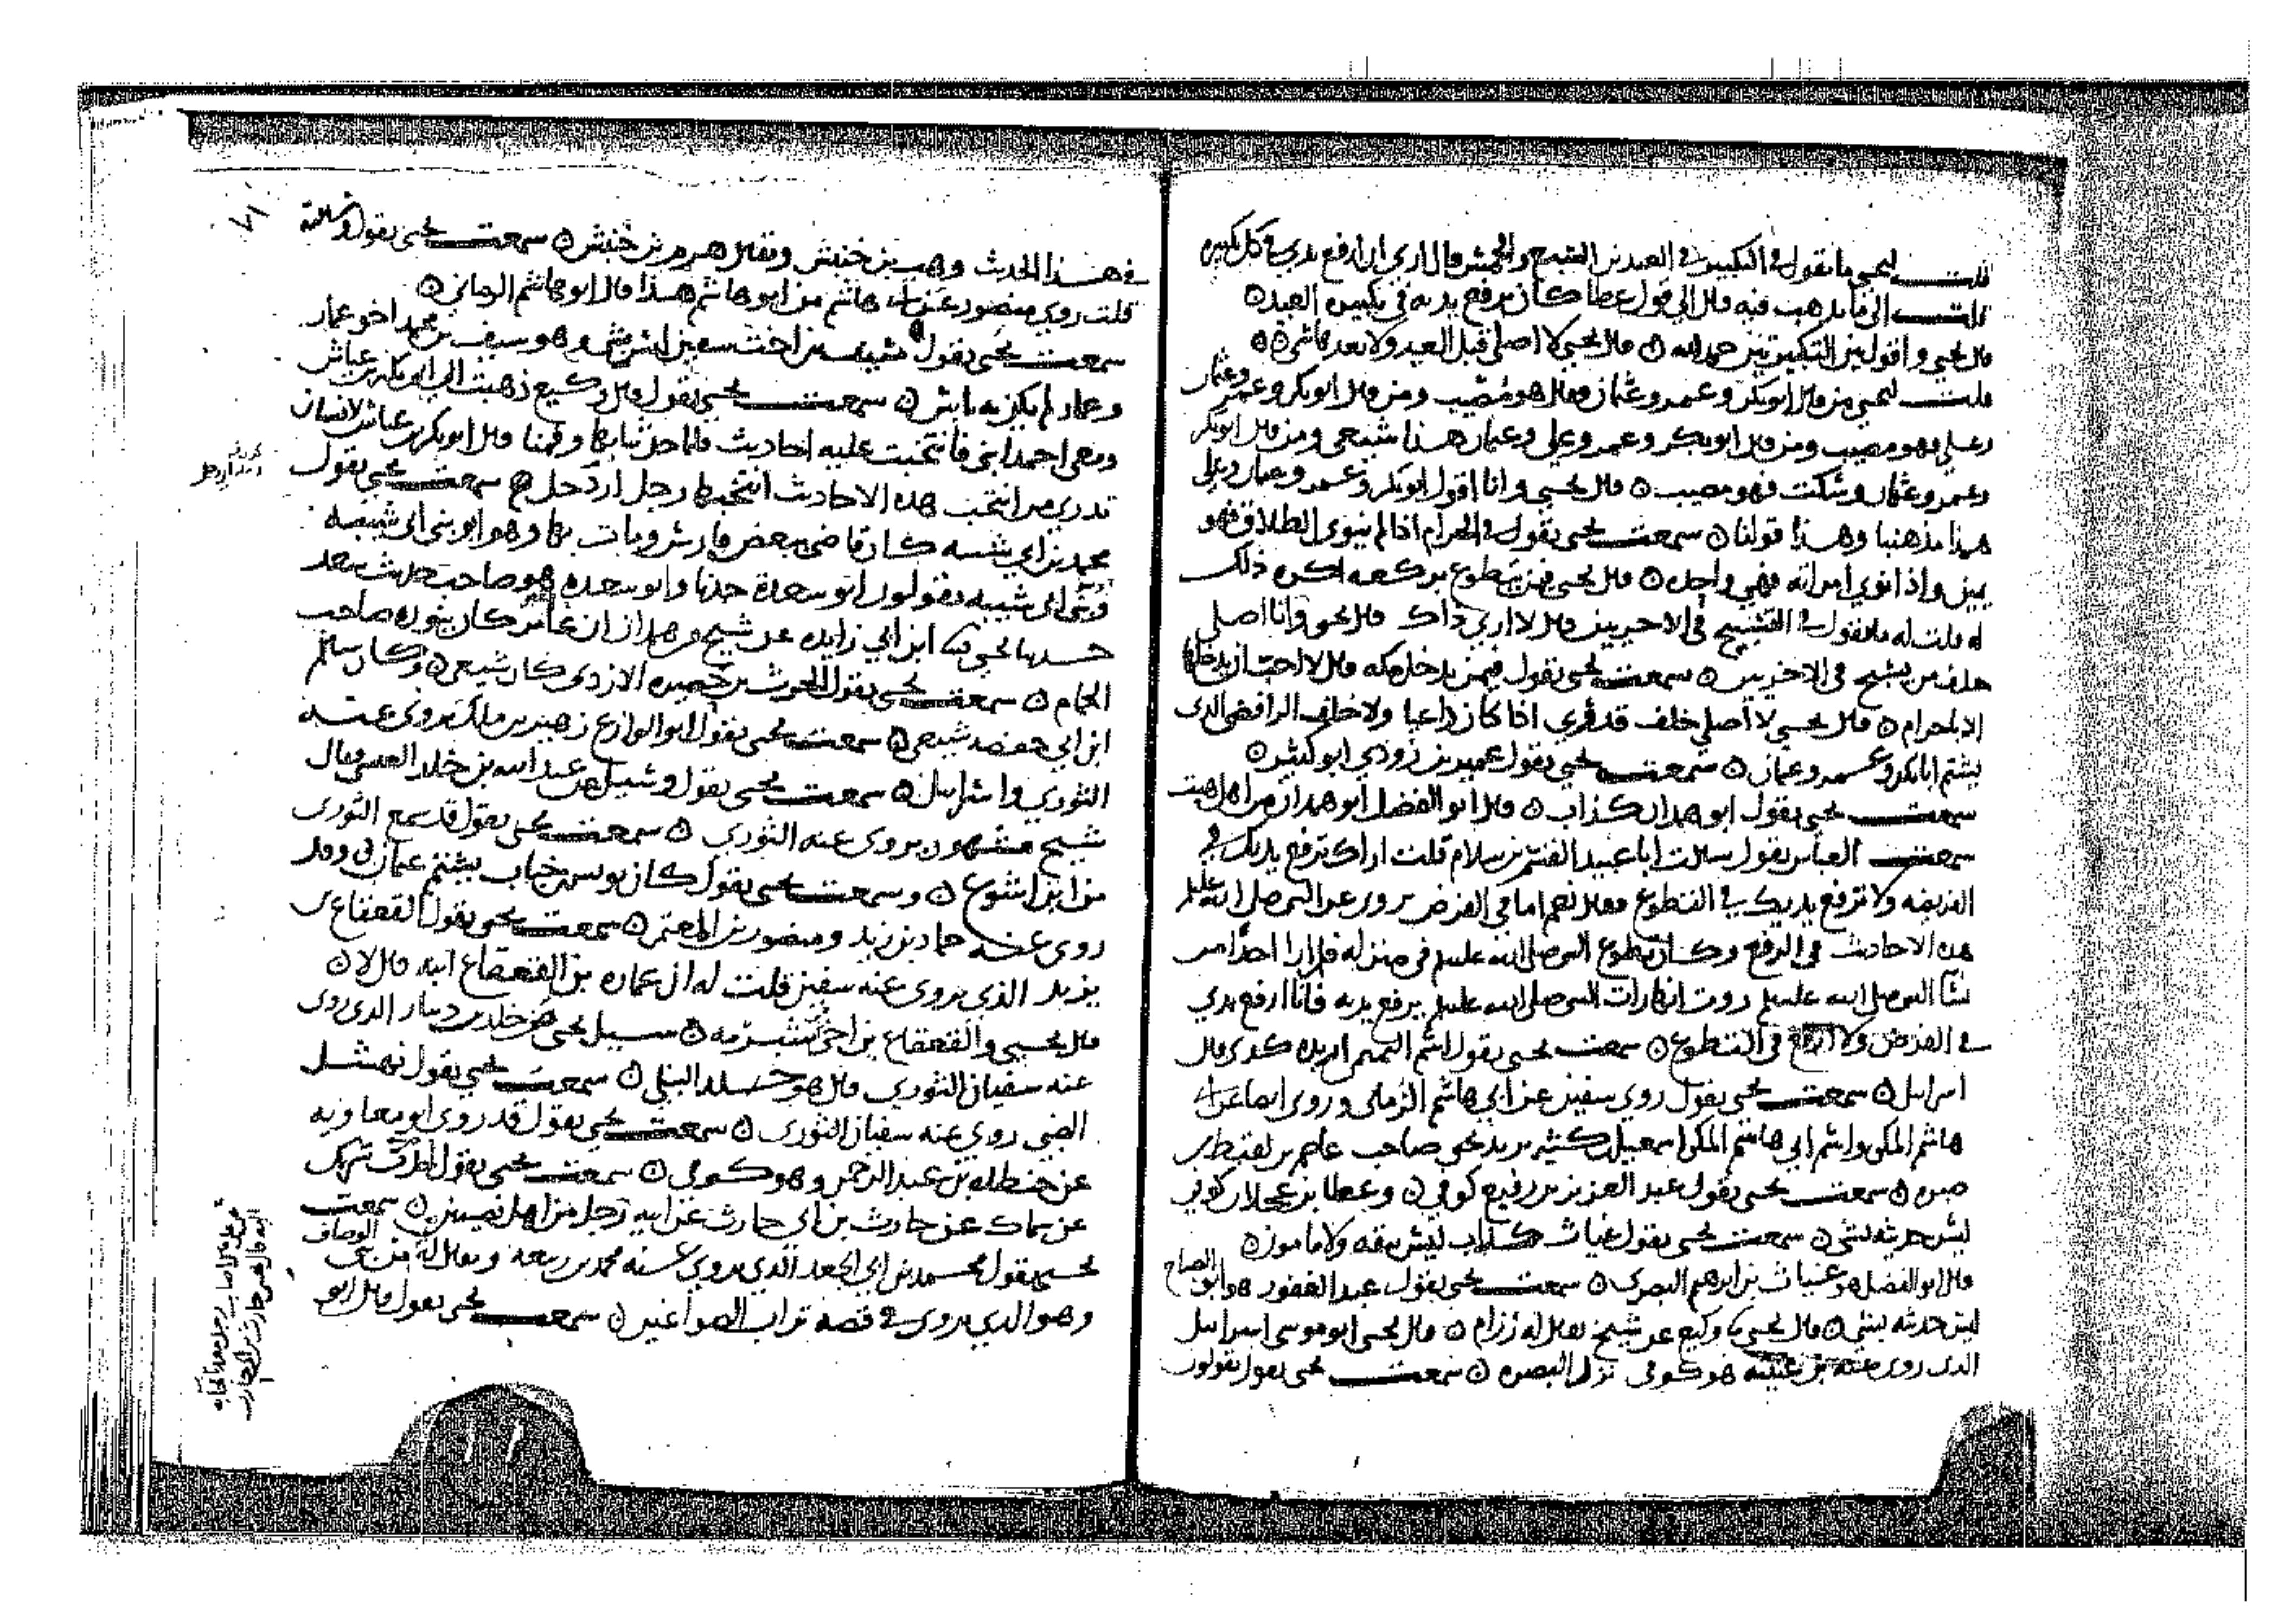 قلت ليحيى ما تقول في التكبير في العيدين السبع والخمس قال ارى ان ارفع يدي في كل تكبيره
قلت الى ما يذهب فيه قال الى قول عطا كان يرفع يديه في تكبير العيد ه
قال يحيى واقول بين التكبيرتين حمد الله ه قال يحيى لا اصلي قبل العيد ولا بعد ماشى ه ه
قلت ليحيى من قال ابو بكر وعمر وعثمان فقال هو مصيب ومن قال ابو بكر وعمر وعثمان
وعلي فهو مصيب ومن قال ابو بكر وعمر وعلي وعثمان هذا شيعي ومن قال ابو بكر
وعمر وعثمان وسكت فهو مصيب ه قال يحيى وانا اقول ابو بكر وعمر وعثمان وعلي
هذا مذهبنا وهذا قولنا ه سمعت يحيى يقول في الحرام اذا لم ينوى الطلاق فهو
يمين واذا نوى امراته فهي واحده ه قال يحيى فيمن يتطوع بركعه اكره ذلك
له قلت له ما تقول في التسبيح في الاخريين قال لا ارى ذاك قال يحيى وانا اصلي
خلف من يسبح في الاخريين ه سمعت يحيى يقول فيمن يدخل مكه قال لا احب ان يدخلها
الا باحرام ه قال يحيى لا اصلي خلف قدري اذا كان داعيا ولا خلف الرافضي الذى
يشتم ابا بكر وعمر وعثمان ه سمعت يحيى يقول عمير بن زوذي ابو كثير ه
سمعت يحيى يقول ابو همدان كذاب ه قال ابو الفضل ابو همدان من اهل هيت
سمعت العباس يقول سالت ابا عبيد القسم بن سلام قلت اراك ترفع يديك في
الفريضه ولا ترفع يديك في التطوع فقال نعم اما في الفرض يروى عن النبي صلى الله عليه وسلم
هذه الاحاديث في الرفع وكان تطوع النبي صلى الله عليه وسلم في منزله فلم ارا احدا من
نسا النبي صلى الله عليه وسلم روت انها رات النبي صلى الله عليه وسلم يرفع يديه فانا ارفع يدي
في الفرض ولا ارفع في التطوع ه سمعت يحيى يقول اسم التميمي اربده كذى قال
اسرايل ه سمعت يحيى يقول روى سفين عن ابي هاشم الرماني وروى ايضا عن ابي
هاشم المكي واسم ابي هاشم المكي اسمعيل بن كثير يريد يحيى صاحب عاصم بن لقيط بن
صبره ه سمعت يحيى يقول عبد العزيز بن رفيع كوفي ه وعطا بن عجلان كوفي
ليس حديثه بشى ه سمعت يحيى يقول غياث كذاب ليس بثقه ولا مامون ه
قال ابو الفضل هو غياث بن ابرهيم البصرى ه سمعت يحيى يقول عبد الغفور هو ابو الصباح
ليس حديثه بشى ه قال يحيى نا وكيع عن شيخ يقال له رزام ه قال يحيى ابو موسى اسرايل
الذى روى عنه بن عيينه هو كوفي نزل البصره ه سمعت يحيى يقول يقولون
في هذا الحديث وهب بن خنبش ويقال هرم بن خنبش ه سمعت يحيى يقول وسالته
قلت روى منصور عن ابي هاشم من ابو هاشم هذا قال ابو هاشم الرماني ه
سمعت يحيى يقول سيف بن اخت سفين ليس بشى وهو سيف بن محمد اخو عمار
وعمار لم يكن به باس ه سمعت يحيى يقول قال وكيع ذهبت الى ابي بكر بن عياش
ومعي احمد ابني فانتخبت عليه احاديث فلما حدثنا بها وقمنا قال ابو بكر بن عياش لانسان
تدري من انتخب هذه الاحاديث انتخبها رجل اردخل ه سمعت يحيى يقول
محمد بن ابي شيبه كان قاضي بعض فارس ومات بها وهو ابو بني ابي شيبه
وبني ابي شيبه يقولون ابو سعده جدنا وابو سعده هو صاحب حديث سعد
حدثنا يحيى نا ابن ابي زايده عن شيخ وهمدان ان عامر كان يتوره صاحب
الحمام ه سمعت يحيى يقول الحرث بن حصيره الازدى كان شيعي ه وكان سالم
ابن ابي حفصه شيعي ه سمعت يحيى يقول ابو الوازع زهير بن ملك يروى عنه
الثوري واسرايل ه سمعت يحيى يقول وسيل عن عبد الله بن خالد العبسي فقال
شيخ مشهور يروى عنه الثوري ه سمعت يحيى يقول قد سمع الثورى
من ابن اشوع ه وسمعت يحيى يقول كان يونس بن خباب يشتم عثمان وقد
روى عنه حماد بن زيد ومنصور بن المعتمر ه سمعت يحيى يقول القعقاع بن
يزيد الذي يروى عنه سفين قلت له ان عماره بن القعقاع ابنه قال لا ه
قال يحيى والقعقاع بن اخى شبرمه ه سيل يحيى عن خلد بن دينار الذى روى
عنه سفيان الثوري قال هو خلد النيلي ه سمعت يحيى يقول نهشل
الضبي روى عنه سفيان الثوري ه سمعت يحيى يقول قد روى ابو معاويه
عن حنظله بن عبد الرحمن وهو كوفي ه سمعت يحيى يقول شريك
عن سماك عن حارث بن ابي حارث عن ابيه رجل من اهل نصيبين ه سمعت
يحيى يقول محمد بن ابي الجعد الذي يروى عنه محمد بن ربيعه ويقال له من بني الوصاف
وهو الذي يروى في قصه تراب الصواغين ه سمعت يحيى يقول قال ابو